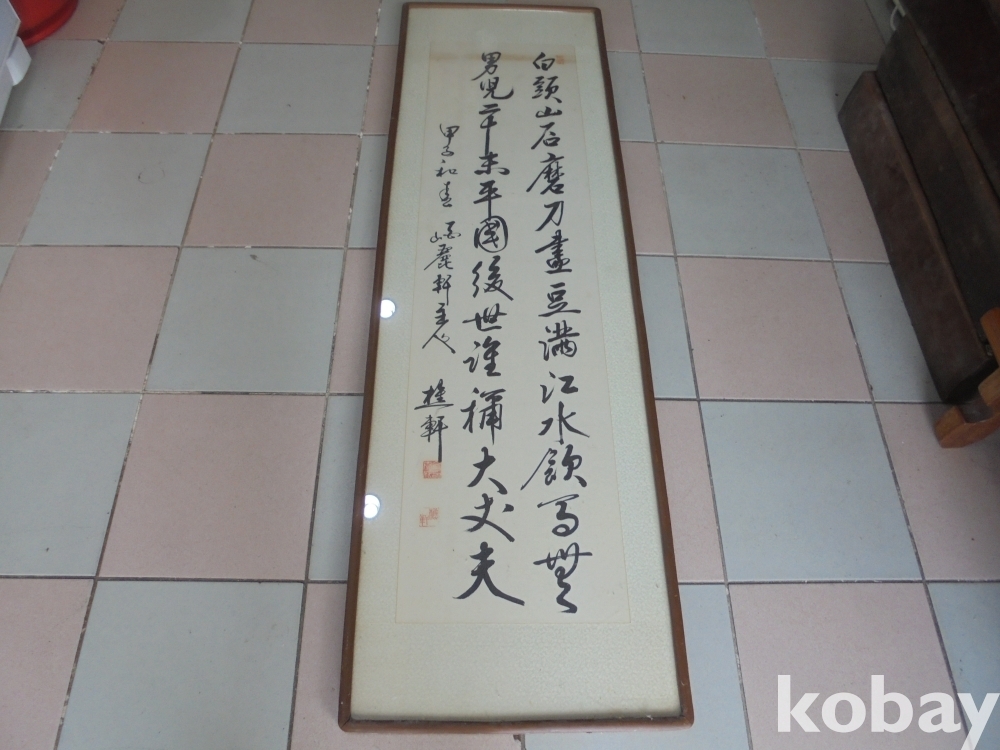 白頭山石磨刀盡豆滿江水飮馬無
男兒二十未平國後世誰稱大丈夫
甲子和春 麗軒主人 軒
kobay